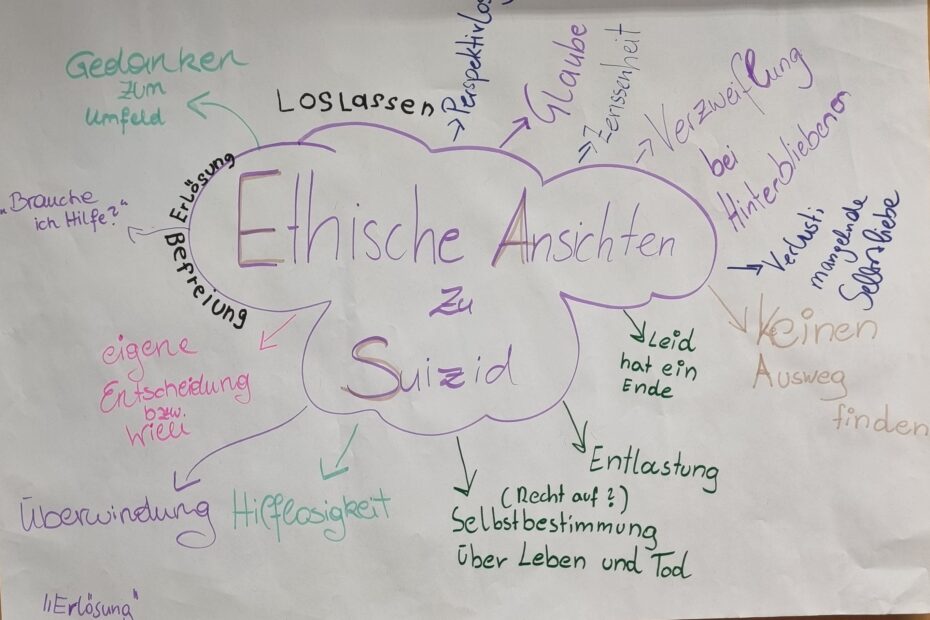 Gedanken
zum
Umfeld
LOSLASSEN
Glaube
Verzweiflung
bei
Hinterbliebenen
"Brauche
ich Hilfe?"
Erlösung
Befreiung
Ethische Ansichten
zu
Suizid
mangelnde
Selbstliebe
Leid
hat ein
Ende
Keinen
Ausweg
finden
eigene
Entscheidung
bzw.
Wille
Überwindung
Hilflosigkeit
Entlastung
(Recht auf?)
Selbstbestimmung
über Leben und Tod
"Erlösung"